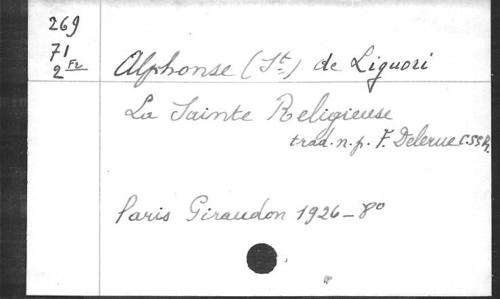 269
71
2 Fr
Alphonse (St.) de Liguori
La Sainte Religieuse
trad. n. p. F. Delerue C.SS.R.
Paris Giraudon 1926 - 8°